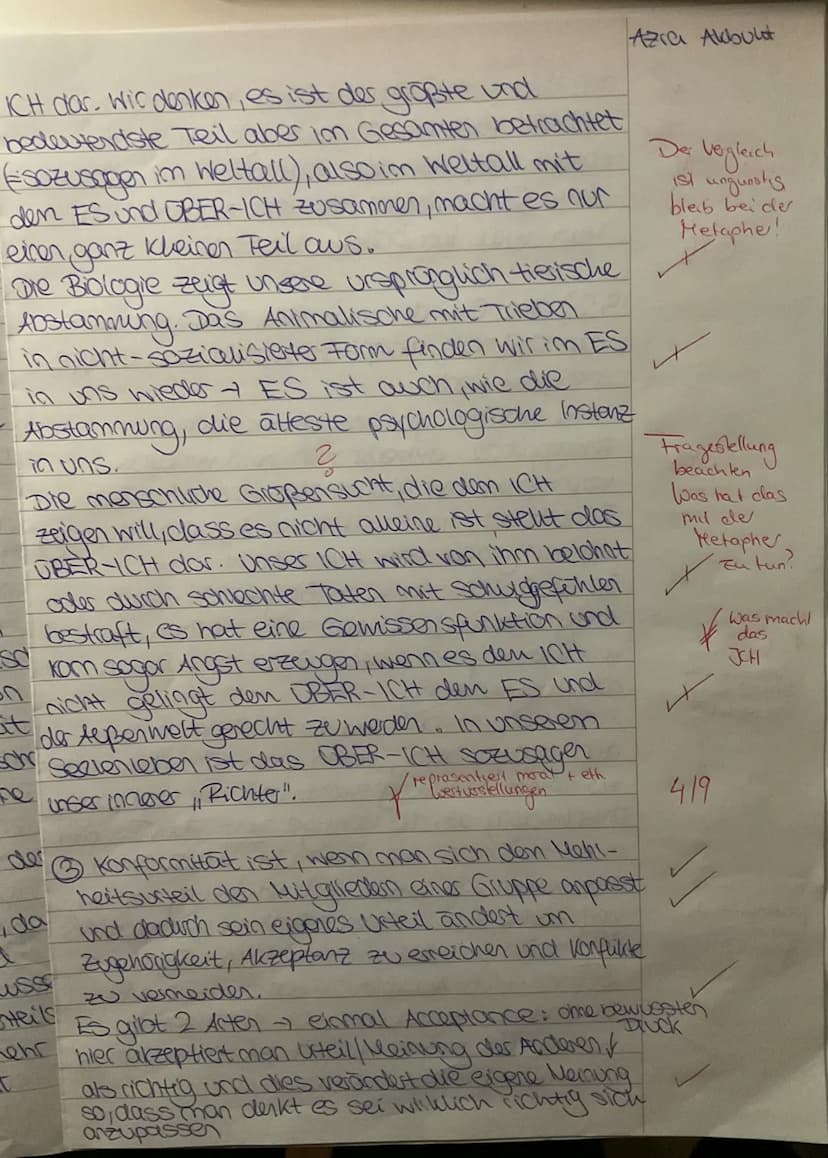 Azra Akbulut
ICH dar. Wir denken, es ist der größte und
bedeutendste Teil aber im Gesamten betrachtet
(sozusagen im Weltall), also im Weltall mit
dem ES und ÜBER-ICH zusammen, macht es nur
einen ganz kleinen Teil aus.
Der Vergleich
ist ungünstig
bleib bei der
Metapher!
Die Biologie zeigt unsere ursprünglich tierische
Abstammung. Das Animalische mit Trieben
in nicht-sozialisierter Form finden wir im ES
in uns wieder → ES ist auch, wie die
Abstammung, die älteste psychologische Instanz
in uns.
?
Die menschliche Größensucht, die dem ICH
zeigen will, dass es nicht alleine ist, stellt das
ÜBER-ICH dar. Unser ICH wird von ihm belohnt
oder durch schlechte Taten mit Schuldgefühlen
bestraft, es hat eine Gewissensfunktion und
kann sogar Angst erzeugen, wenn es dem ICH
nicht gelingt dem ÜBER-ICH dem ES und
der Außenwelt gerecht zu werden. In unserem
Seelenleben ist das ÜBER-ICH sozusagen
unser innerer „Richter".
Fragestellung
beachten
Was hat das
mit der
Metapher
zu tun?
Was macht
das
ICH
repräsentiert moral + eth.
Wertvorstellungen
4/9
③ Konformität ist, wenn man sich dem Mehr-
heitsurteil den Mitgliedern einer Gruppe anpasst
und dadurch sein eigenes Urteil ändert um
Zugehörigkeit, Akzeptanz zu erreichen und Konflikte
zu vermeiden.
Es gibt 2 Arten → einmal Acceptance: ohne bewussten
Druck
hier akzeptiert man Urteil/Meinung der Anderen
als richtig und dies verändert die eigene Meinung
so, dass man denkt es sei wirklich richtig sich
anzupassen